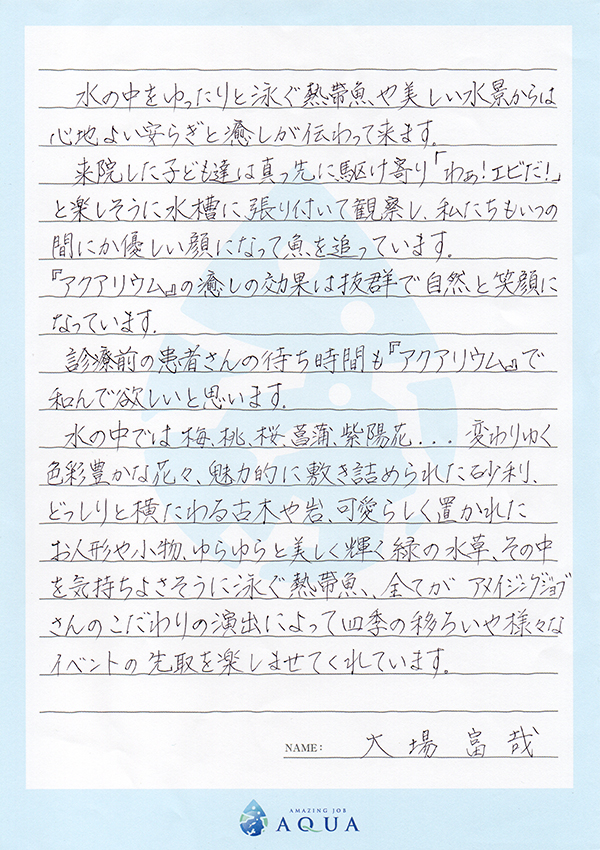 水の中をゆったりと泳ぐ熱帯魚、や美しい水景からは
心地よい安らぎと癒しが伝わって来ます。
来院した子ども達は真っ先に駆け寄り「わぁ!エビだ!」
と楽しそうに水槽に張り付いて観察し、私たちもいつの
間にか優しい顔になって魚を追っています。
『アクアリウム』の癒しの効果は抜群で自然と笑顔に
なっています。
診療前の患者さんの待ち時間も『アクアリウム』で
和んで欲しいと思います。
水の中では梅、桃、桜、菖蒲、紫陽花... 変わりゆく
色彩豊かな花々、魅力的に敷き詰められた砂利、
どっしりと横たわる古木や岩、可愛らしく置かれた
お人形や小物、ゆらゆらと美しく輝く緑の水草、その中
を気持ちよさそうに泳ぐ熱帯魚、、全てが アメイジングジョブ
さんのこだわりの演出によって四季の移ろいや様々な
イベントの先取を楽しませてくれています。
NAME: 大場富哉
AMAZING JOB
AQUA